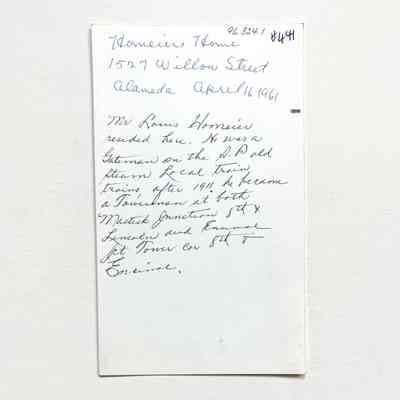 96.324.1 #441
Homeiers Home
1527 Willow Street
Alameda April 16 1961
Mr Louis Homeier
resided here. He was a
Gateman on the S.P. old
Steam Local train
trains, after 1911, he became
a Towerman at both
Mastick Junction 8th &
Lincoln and
Jct Tower cor 8th &
Encinal.